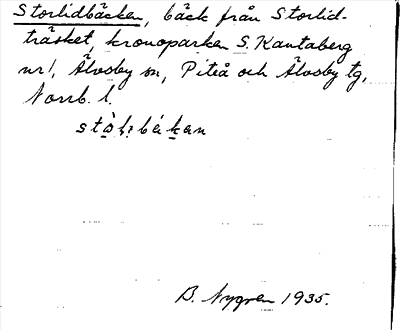 Storlidbäcken, bäck från Storlid-
träsket, kronoparken S. Kantaberg
nr 1, Älvsby sn, Piteå och Älvsby tg,
Norrb. l.
B. Nygren 1935.